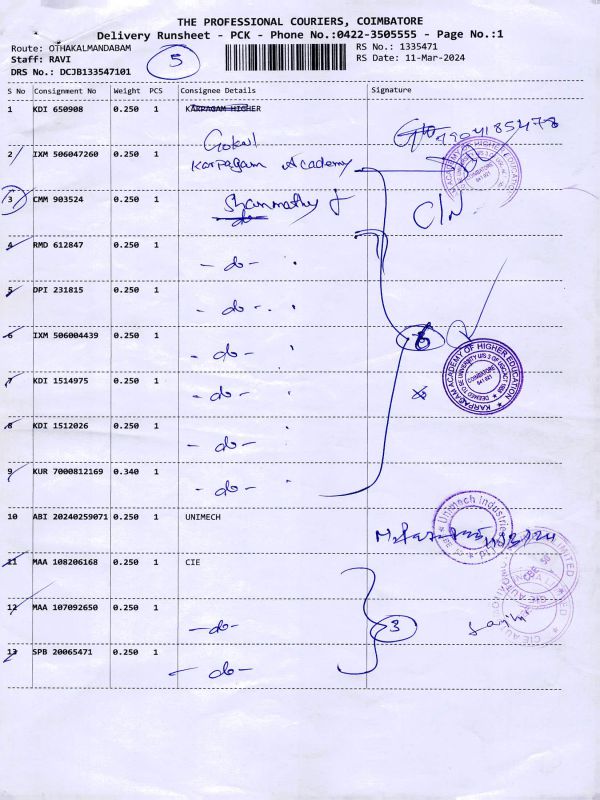 THE PROFESSIONAL COURIERS, COIMBATORE
Delivery Runsheet - PCK - Phone No.:0422-3505555 - Page No.:1
Route: OTHAKALMANDABAM
Staff: RAVI
DRS No.: DCJB133547101
5
RS No.: 1335471
RS Date: 11-Mar-2024
S No Consignment No Weight PCS Consignee Details Signature
1 KDI 650908 0.250 1 KARPAGAM HIGHER
Gokul
2 IXM 506047260 0.250 1 Karpagam Academy
3 CMM 903524 0.250 1
C/N
4 RMD 612847 0.250 1 - do -
5 DPI 231815 0.250 1 - do -
6 IXM 506004439 0.250 1 - do -
6
KARPAGAM ACADEMY OF HIGHER EDUCATION
COIMBATORE
641 021
7 KDI 1514975 0.250 1 - do -
8 KDI 1512026 0.250 1 - do -
9 KUR 7000812169 0.340 1 - do -
10 ABI 20240259071 0.250 1 UNIMECH
Unimech Industries
11 MAA 108206168 0.250 1 CIE
12 MAA 107092650 0.250 1 - do -
3
13 SPB 20065471 0.250 1 - do -